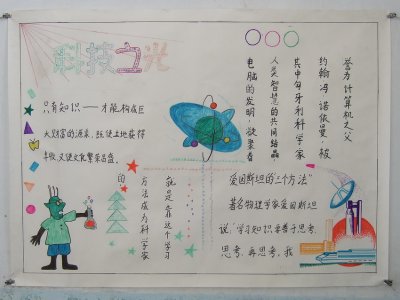 科技之光
只有知识——才能构成巨
大财富的源泉,既使土地获得
丰收,又使文化繁荣昌盛。
电脑的发明,凝聚着
人类智慧的共同结晶
其中匈牙利科学家
约翰·冯·诺依曼被
誉为计算机之父
爱因斯坦的三个方法"
著名物理学家爱因斯坦
说:学习知识要善于思考,
思考,再思考,我
就是靠这个学习
方法成为科学家
的